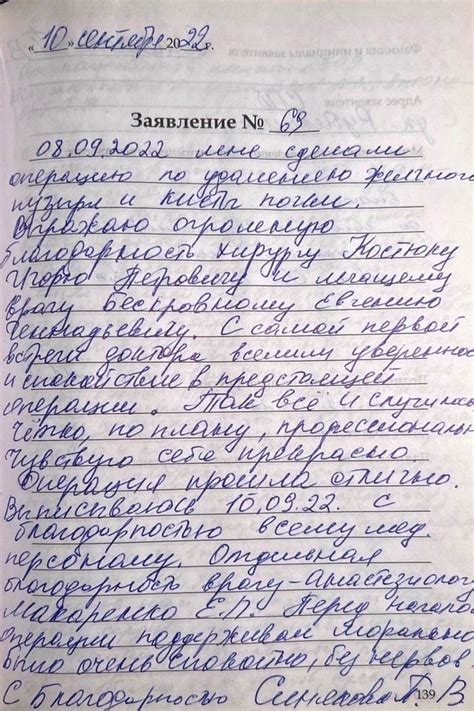 « 10 » сентября 2022 г.
Заявление № 69
08.09.2022 мне сделали
операцию по удалению желчного
пузыря и кисты почки.
Выражаю огромную
благодарность хирургу Костюку
Игорю Петровичу и лечащему
врагу Бескровному Евгению
Геннадьевичу. С самой первой
встречи доктора вселили уверенность
и спокойствие в предстоящей
операции. Так всё и случилось
Чётко, по плану, профессионально
Чувствую себя прекрасно.
Операция прошла отлично.
Выписываюсь 10.09.22. С
благодарностью всему мед.
персоналу. Отдельная
благодарность врачу-анастезиологу
Макаренко Е.П. Перед началом
операции поддерживал морально
было очень спокойно, без нервов
С благодарностью В
139